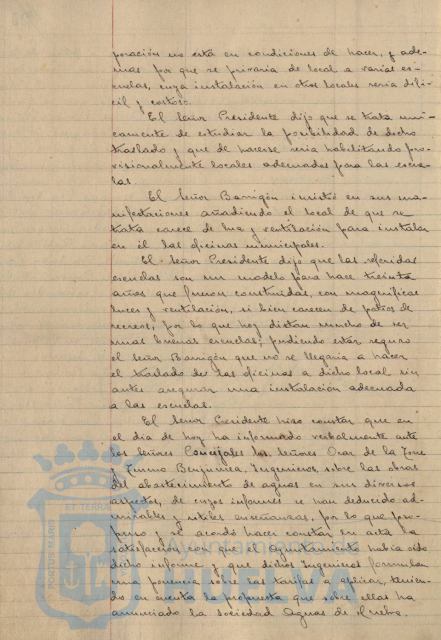 poración no está en condiciones de hacer, y ade-
mas por que se privaria de local a varias es-
cuelas, cuya instalación en otros locales seria difi-
cil y costoso.
El Señor Presidente dijo que se trata uni-
camente de estudiar la posibilidad de dicho
traslado y que de hacerse seria habilitando pro-
visionalmente locales adecuados para las escue-
las.
El Señor Barrigón insistió en sus ma-
nifestaciones añadiendo el local de que se
trata carece de luz y ventilación para instalar
en él las oficinas municipales.
El Señor Presidente dijo que las referidas
escuelas son un modelo para hace treinta
años que fueron construidas, con magnificas
luces y ventilación, si bien carecen de patios de
recreos, por lo que hoy distan mucho de ser
unas buenas escuelas; pudiendo estar seguro
el Señor Barrigón que no se llegaria a hacer
el traslado de las oficinas a dicho local sin
antes asegurar una instalación adecuada
a las escuelas.
El Señor Presidente hizo constar que en
el dia de hoy ha informado verbalmente ante
los Señores Concejales los Señores de la
y Benjumea, Ingenieros, sobre las obras
del abastecimiento de aguas en sus diversos
aspectos, de cuyos informes se han deducido ad-
mirables y utiles enseñanzas, por lo que pro-
puso y se acordó hacer constar en acta la
satisfacción con que el Ayuntamiento habia oido
dicho informe y que dichos Ingenieros formulen
una ponencia sobre las tarifas a aplicar, tenien-
do en cuenta la propuesta que sobre ellas ha
anunciado la Sociedad Aguas de Huelva.
PORTUS MARIS ET TERRAE
Ayuntamiento de
HUELVA